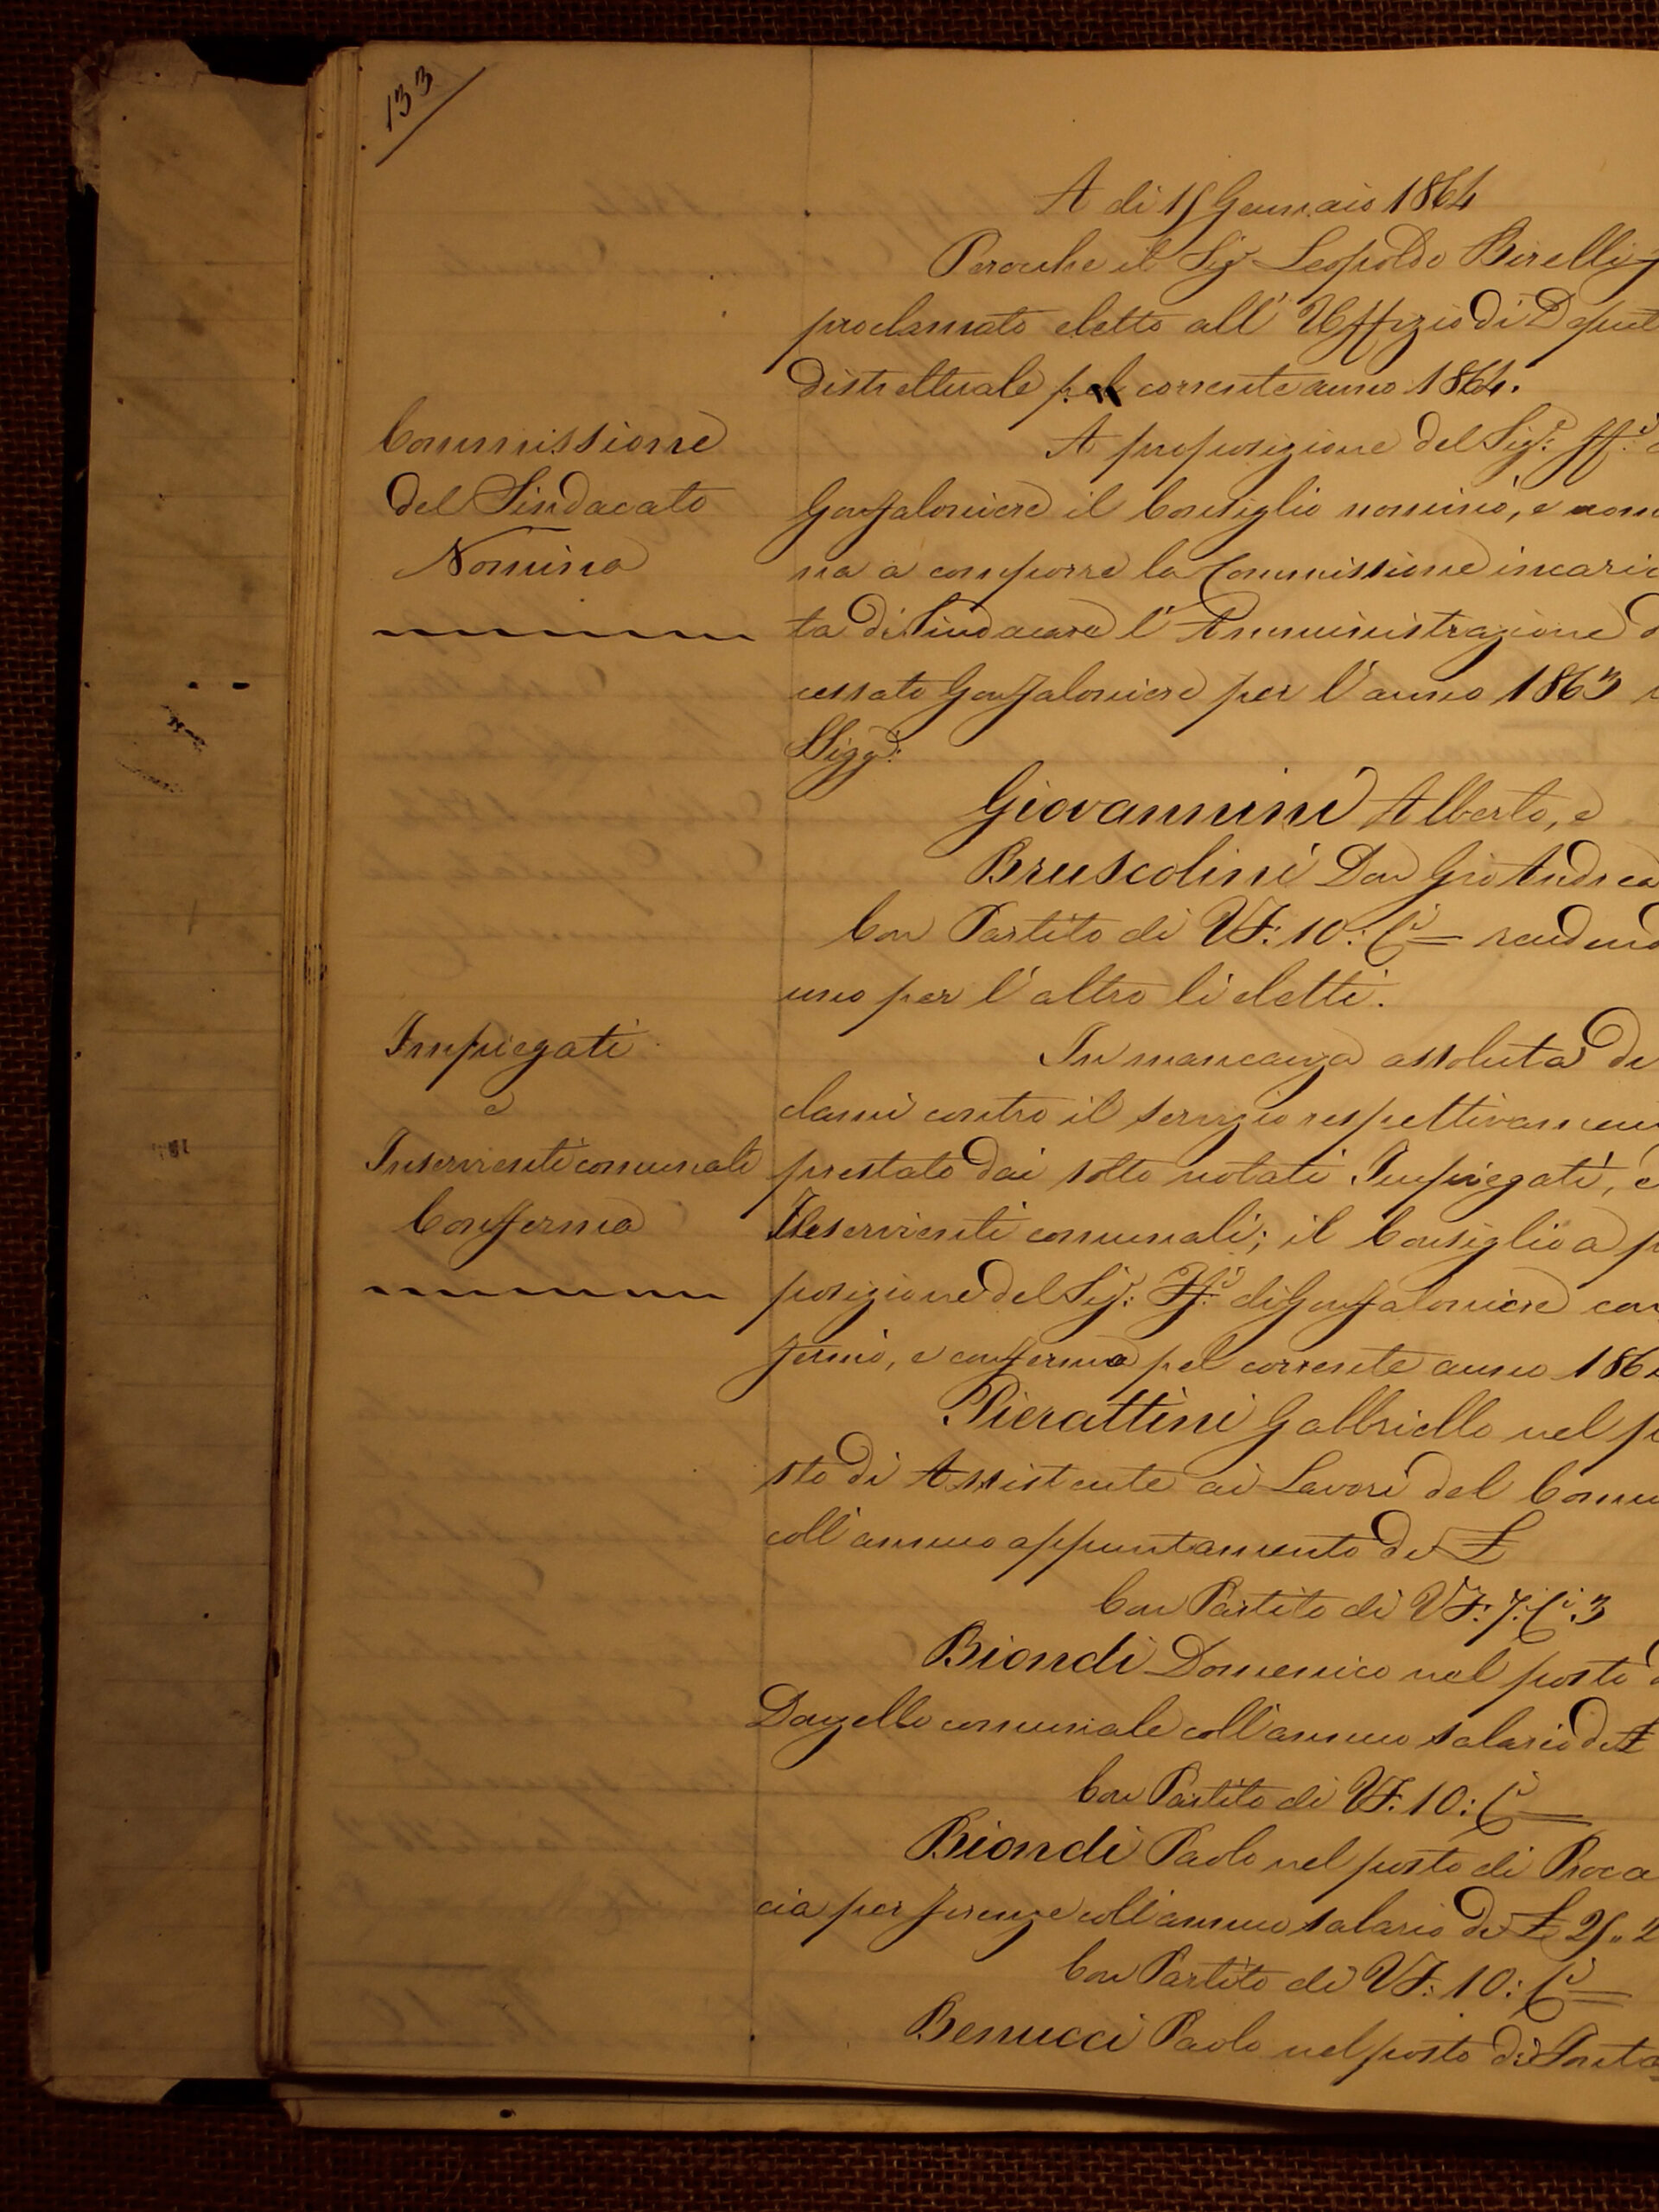 133
A dì 15 Gennaio 1864
Perochè il Sig.r Leopoldo Birelli
proclamato eletto all' Uffizio di Deput
distrettuale pel corrente anno 1864.
Commissione
del Sindacato
Nomina
A proposizione del Sig.r: ff.i
Gonfaloniere il Consiglio nominò, e nom
na a comporre la Commissione incaric
ta di Sindacare l'Amministrazione d
cessato Gonfaloniere per l'anno 1863 i
SSigg.i:
Giovannini Alberto, e
Bruscolini Don Gio Andrea
Con Partito di VF: 10: C.i = rendend
uno per l'altro li eletti.
Impiegati
e
Inservienti comunali
Conferma
In mancanza assoluta di
clami contro il servizio respettivamen
prestato dai sotto notati Impiegati, e
Inservienti comunali; il Consiglio a p
posizione del Sig.r: ff.i di Gonfaloniere con
fermò, e conferma pel corrente anno 186
Pierattini Gabbriello nel p
sto di Assistente ai Lavori del Comu
coll'annuo appuntamento di £
Con Partito di VF: 7: C.i 3
Biondi Domenico nel posto d
Donzello comunale coll'annuo salario di £
Con Partito di VF: 10: C.i =
Biondi Paolo nel posto di Proca
cia per Firenze coll'annuo salario di £ 25,, 2
Con Partito di VF: 10: C.i =
Benucci Paolo nel posto di